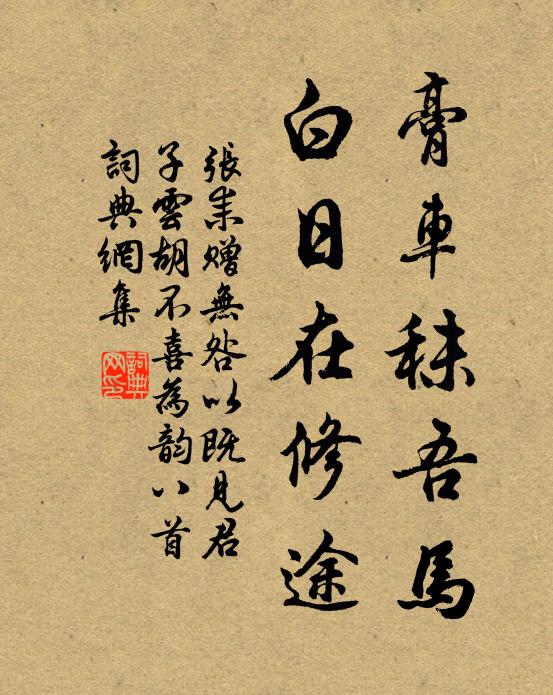 膏車秣吾馬
白日在修途
張耒贈無咎以既見君
子雲胡不喜為韵八首
詞典網集
詞典網印